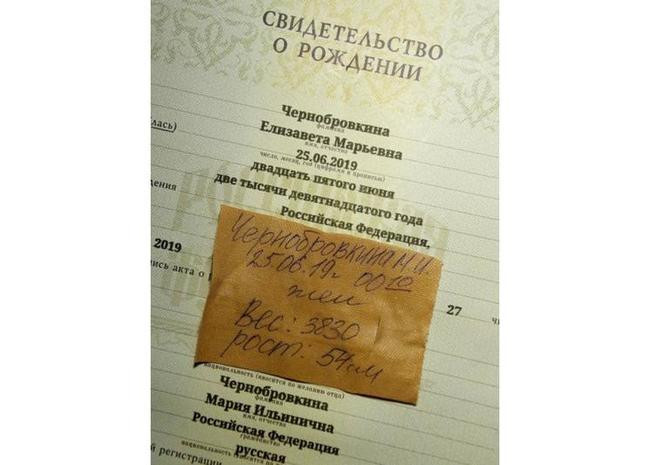 СВИДЕТЕЛЬСТВО
О РОЖДЕНИИ
Чернобровкина
фамилия
(лась)
Елизавета Марьевна
имя, отчество
25.06.2019
число, месяц, год (цифрами и прописью)
двадцать пятого июня
две тысячи девятнадцатого года
Российская Федерация,
2019
27
Чернобровкина М.И.
25.06.19г 00 10
жен
Вес: 3830
рост: 54см
национальность (вносится по желанию отца)
Чернобровкина
фамилия
Мария Ильинична
имя, отчество
Российская Федерация
гражданство
русская
й регистрации